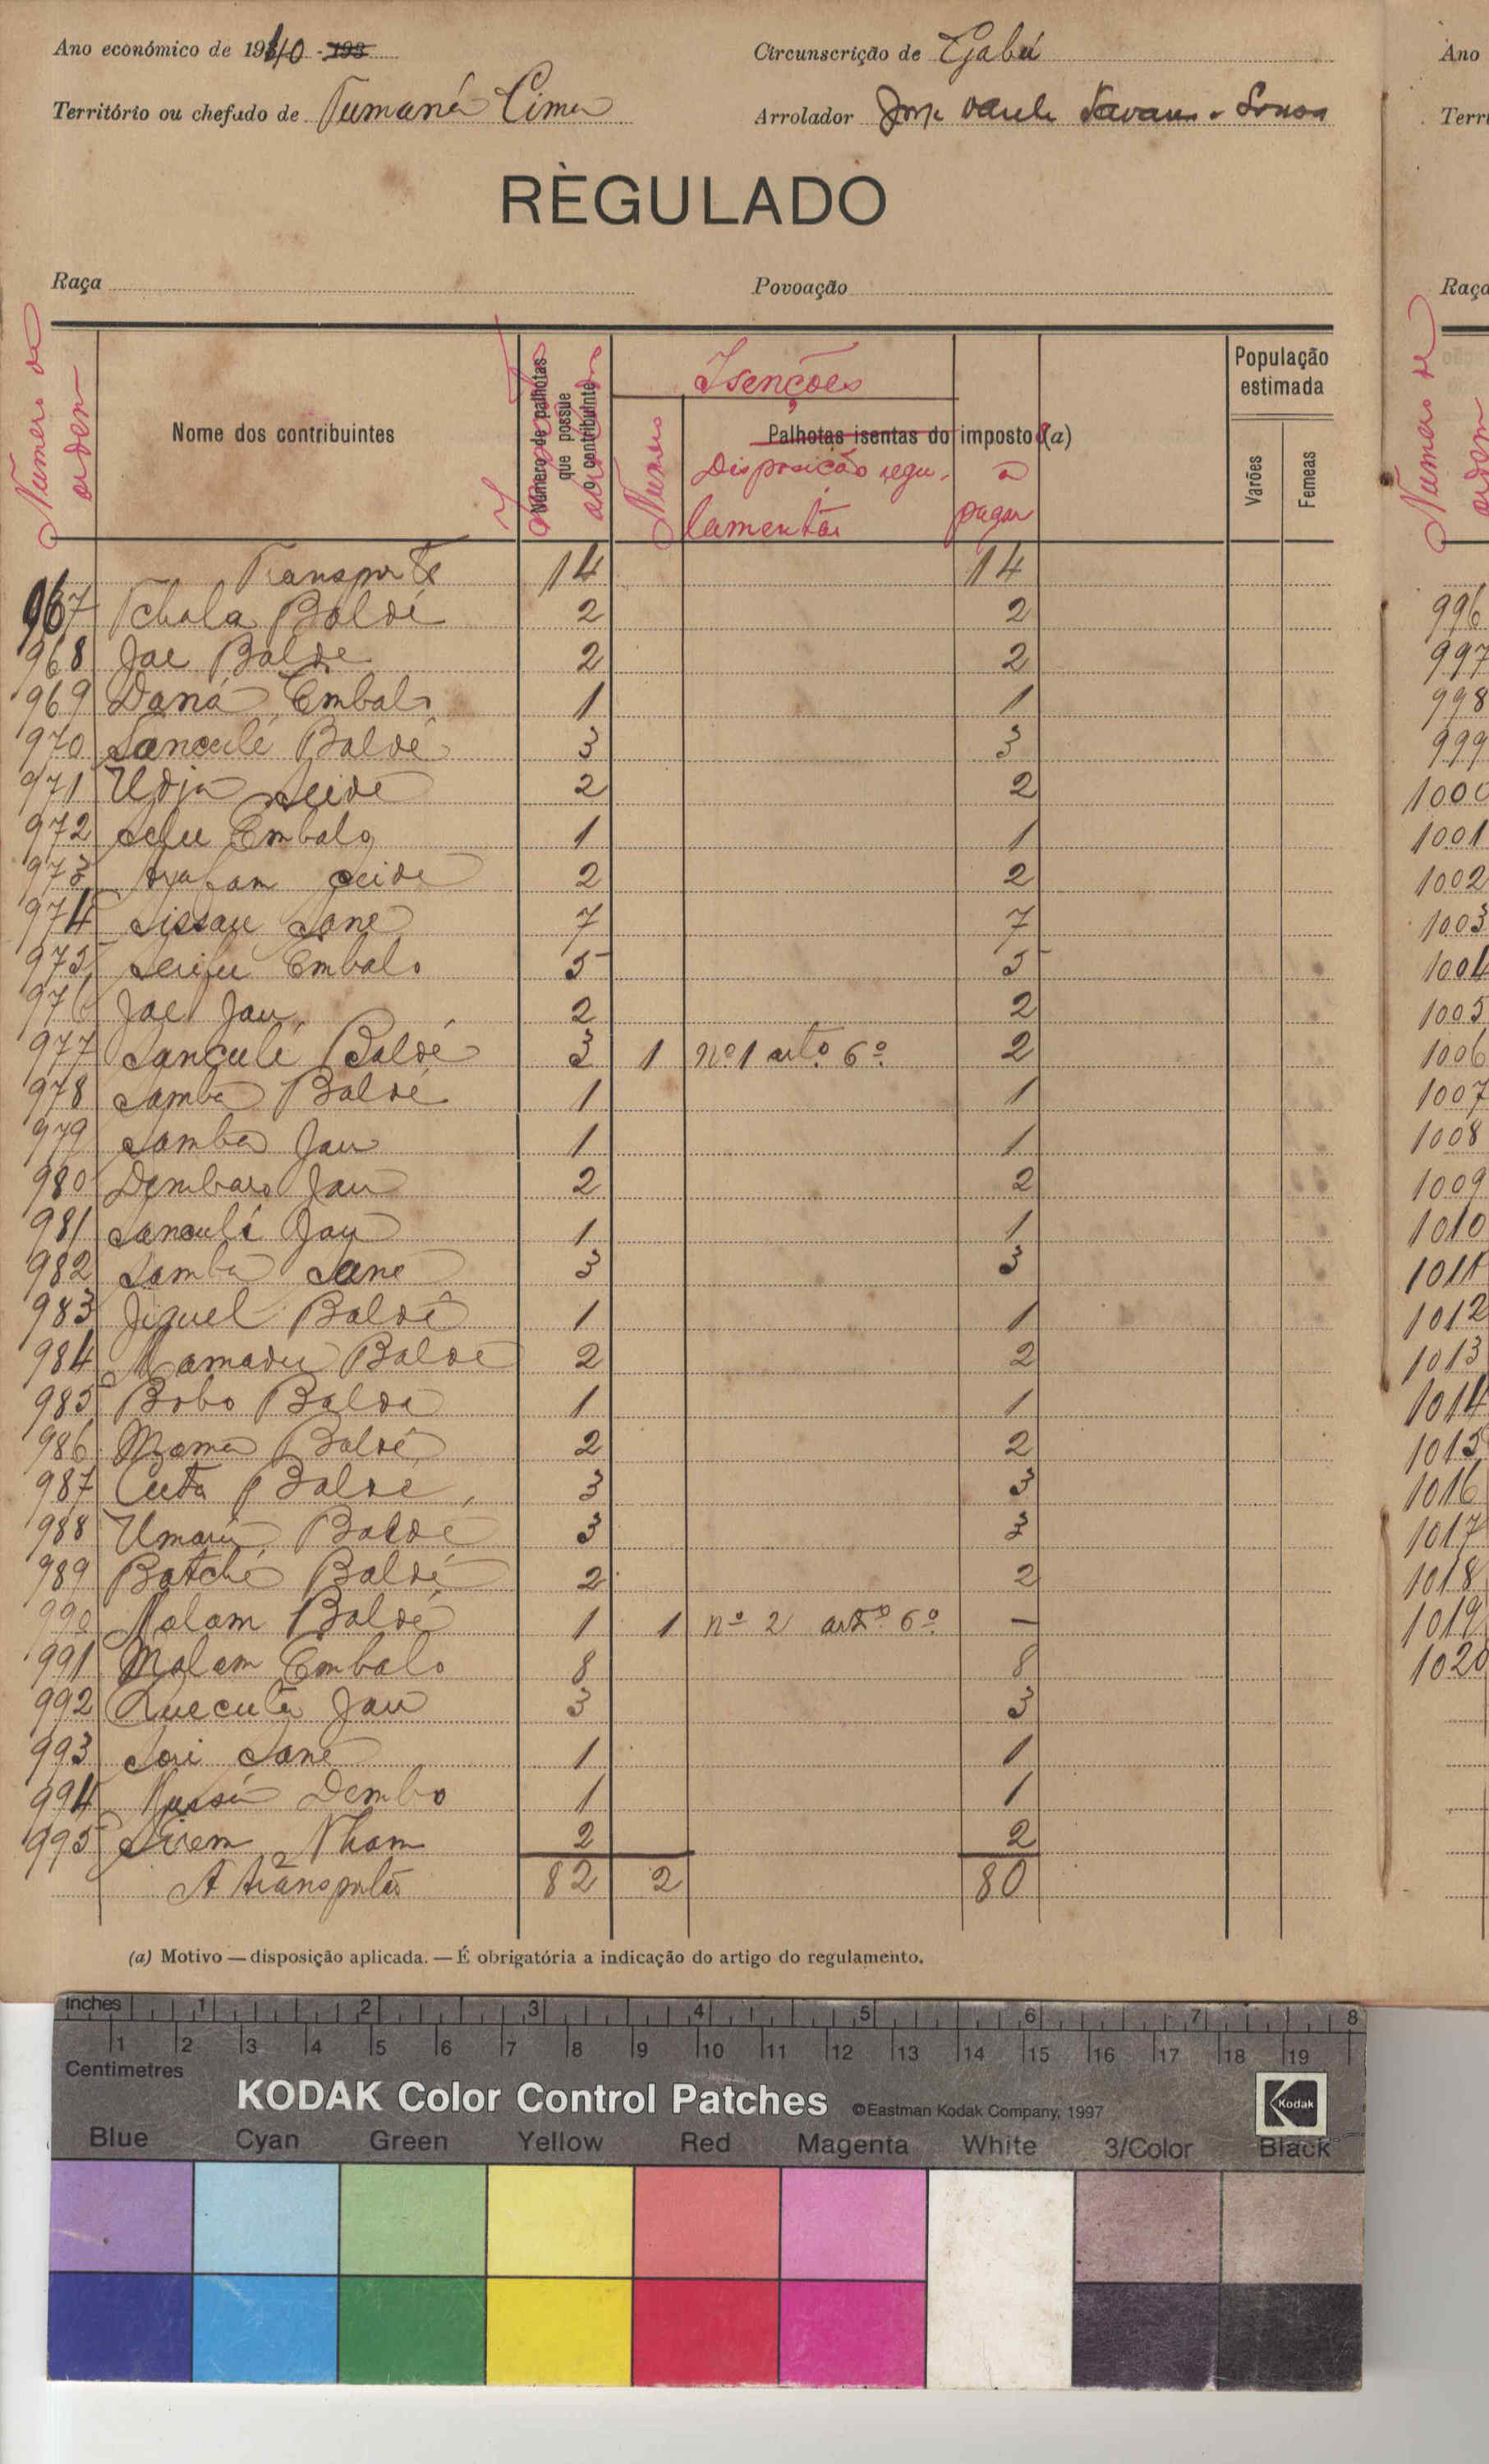 Ano económico de 1940 - 193
Circunscrição de Gabú
Território ou chefado de Tumaná Cima
Arrolador
RÈGULADO
Raça
Povoação
Numero de ordem
Nome dos contribuintes
Número de palhotas que possue o contribuinte
Isenções
Numero
Palhotas isentas do imposto (a)
Disposição regulamentar
a pagar
População estimada
Varões
Femeas
Transporte 14 14
967 Tchala Baldé 2 2
968 Jae Balde 2 2
969 Daná Embaló 1 1
970 Sanculé Baldé 3 3
971 Udja Seide 2 2
972 Selu Embalo 1 1
973 Seide 2 2
974 Sissau Sane 7 7
975 Embalo 5 5
976 Jae Jau 2 2
977 Sanculé Baldé 3 1 nº 1 artº 6º 2
978 Samba Baldé 1 1
979 Samba Jau 1 1
980 Dembaro Jau 2 2
981 Sanculé Jau 1 1
982 Samba Sane 3 3
983 Jiguel Baldé 1 1
984 Mamadu Baldé 2 2
985 Bobo Balde 1 1
986 Mama Baldé 2 2
987 Cuta Balde 3 3
988 Umarú Baldé 3 3
989 Batché Baldé 2 2
990 Malam Baldé 1 1 nº 2 artº 6º —
991 Malam Embalo 8 8
992 Quecuta Jau 3 3
993 Sori Sané 1 1
994 Dembo 1 1
995 2 2
A transportar 82 2 80
(a) Motivo — disposição aplicada. — É obrigatória a indicação do artigo do regulamento.
Ano
Terri
Raça
Numero de ordem
996
997
998
999
1000
1001
1002
1003
1004
1005
1006
1007
1008
1009
1010
1011
1012
1013
1014
1015
1016
1017
1018
1019
1020
Inches 1 2 3 4 5 6 7 8
1 2 3 4 5 6 7 8 9 10 11 12 13 14 15 16 17 18 19
Centimetres
KODAK Color Control Patches ©Eastman Kodak Company, 1997 Kodak
Blue Cyan Green Yellow Red Magenta White 3/Color Black